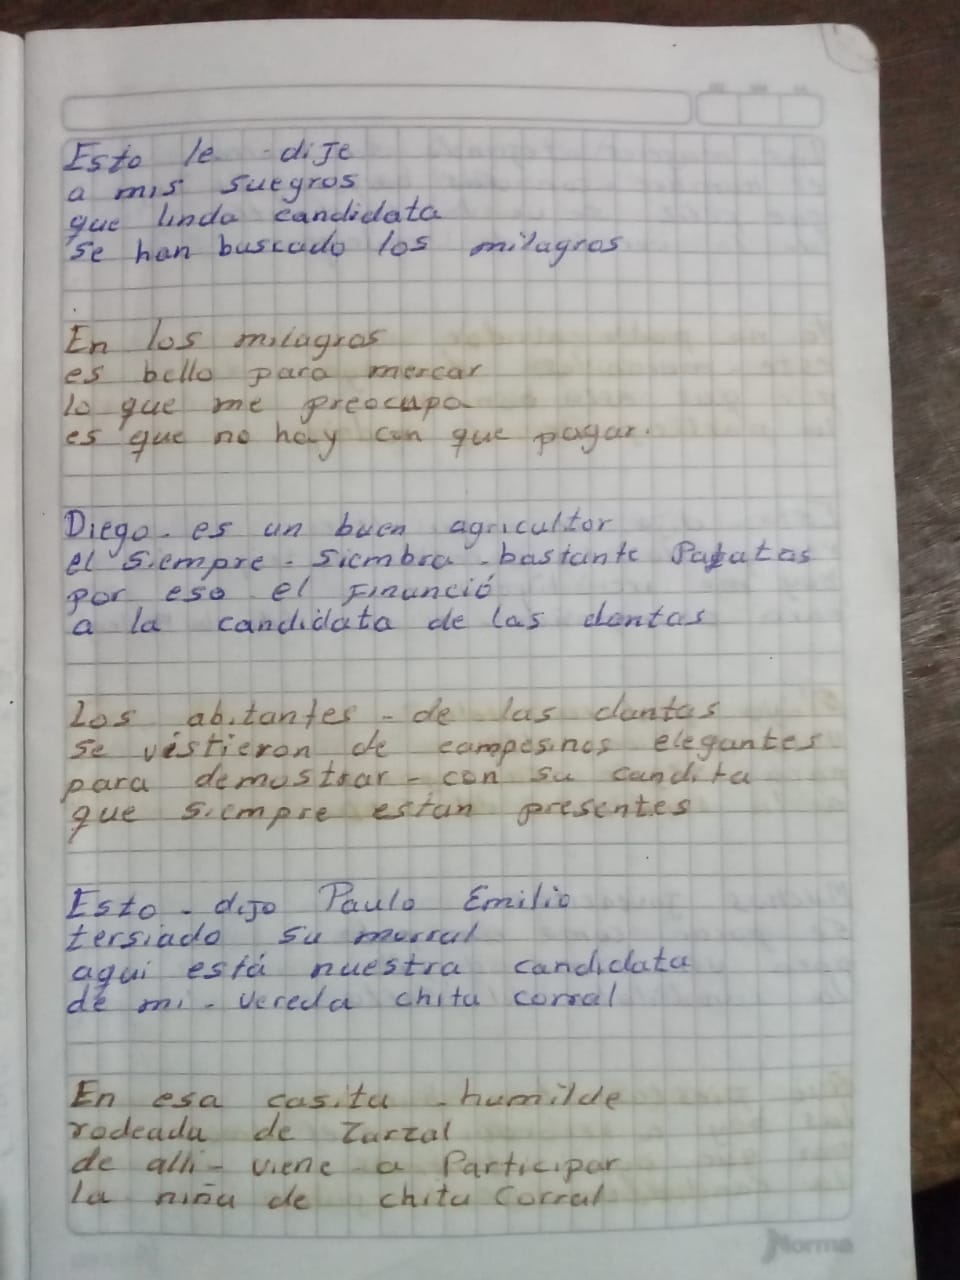 Esto le - dije
a mis suegros
que linda candidata
se han buscado los milagros
En los milagros
es bello para mercar
lo que me preocupa
es que no hay con que pagar.
Diego - es un buen agricultor
el siempre - siembra - bastante Papatas
por eso el Financió
a la candidata de las dantas
Los abitantes - de las dantas
se vistieron de campesinos elegantes
para demostrar - con su candita
que siempre estan presentes
Esto - dijo Paulo Emilio
tersiado su murral
aqui está nuestra candidata
de mi - vereda chita corral
En esa casita - humilde
rodeada de Zarzal
de alli - viene a Participar
la niña de chita Corral
Norma